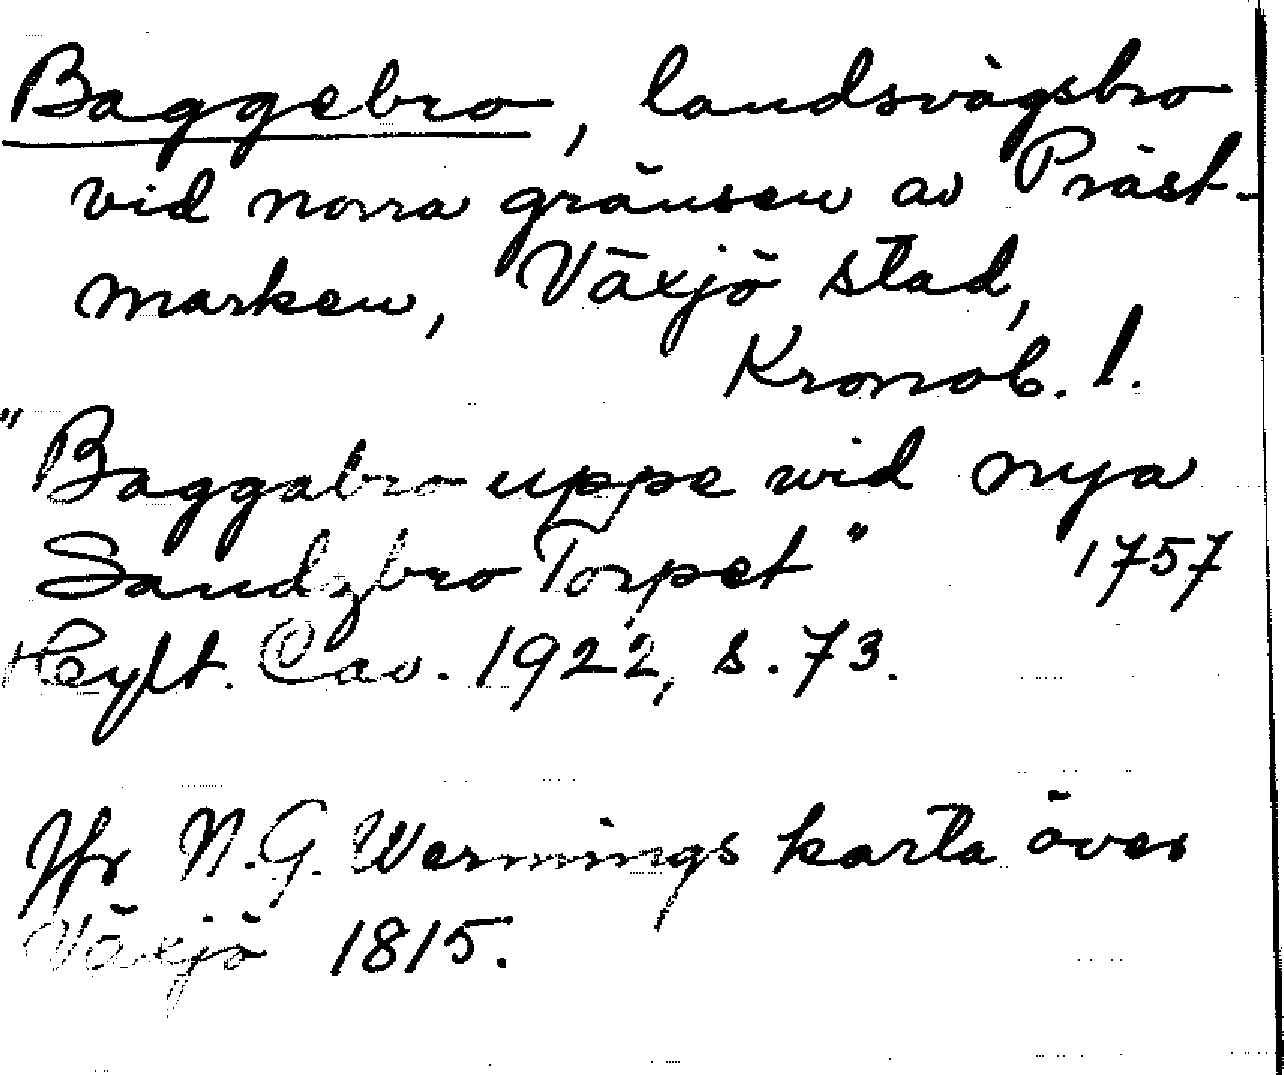 Baggebro, landsvägsbro
vid norra gränsen av Präst-
marken, Växjö stad,
Kronob. l.
"Baggabro uppe wid nya
Sandzbro Torpet" 1757
Hylt. Cav. 1922, s. 73.
Jfr N. G. Wernings karta över
Växjö 1815.